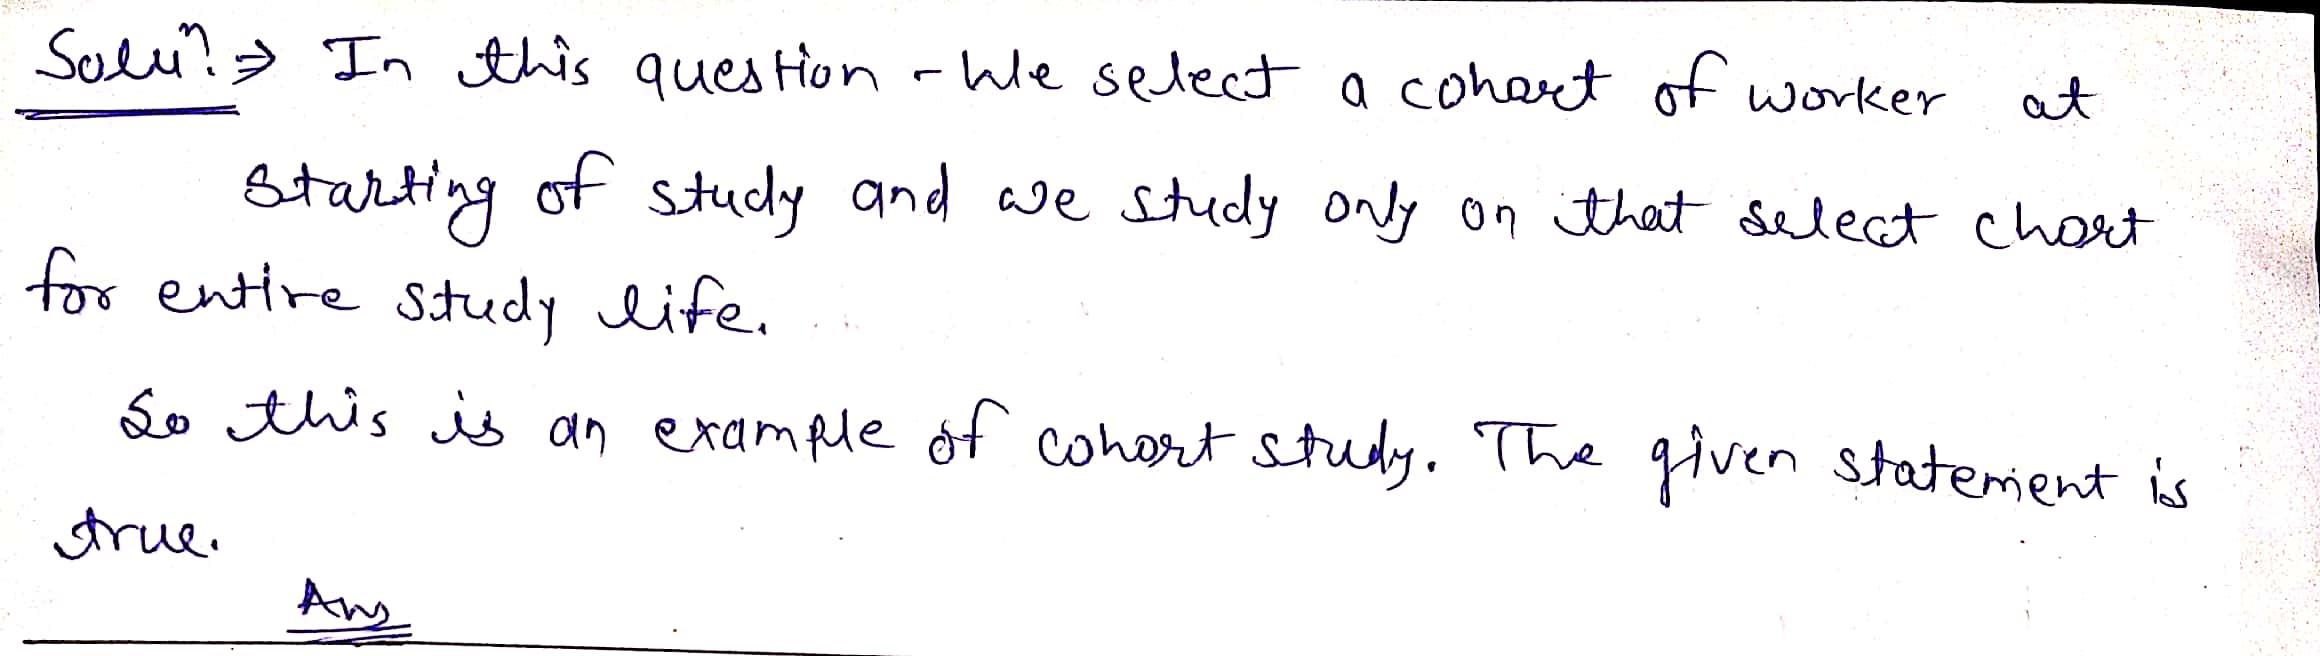 Soluⁿ. ⇒ In this question - We select a cohort of worker at
starting of study and we study only on that select chort
for entire study life.
So this is an example of cohort study. The given statement is
true.
Ans